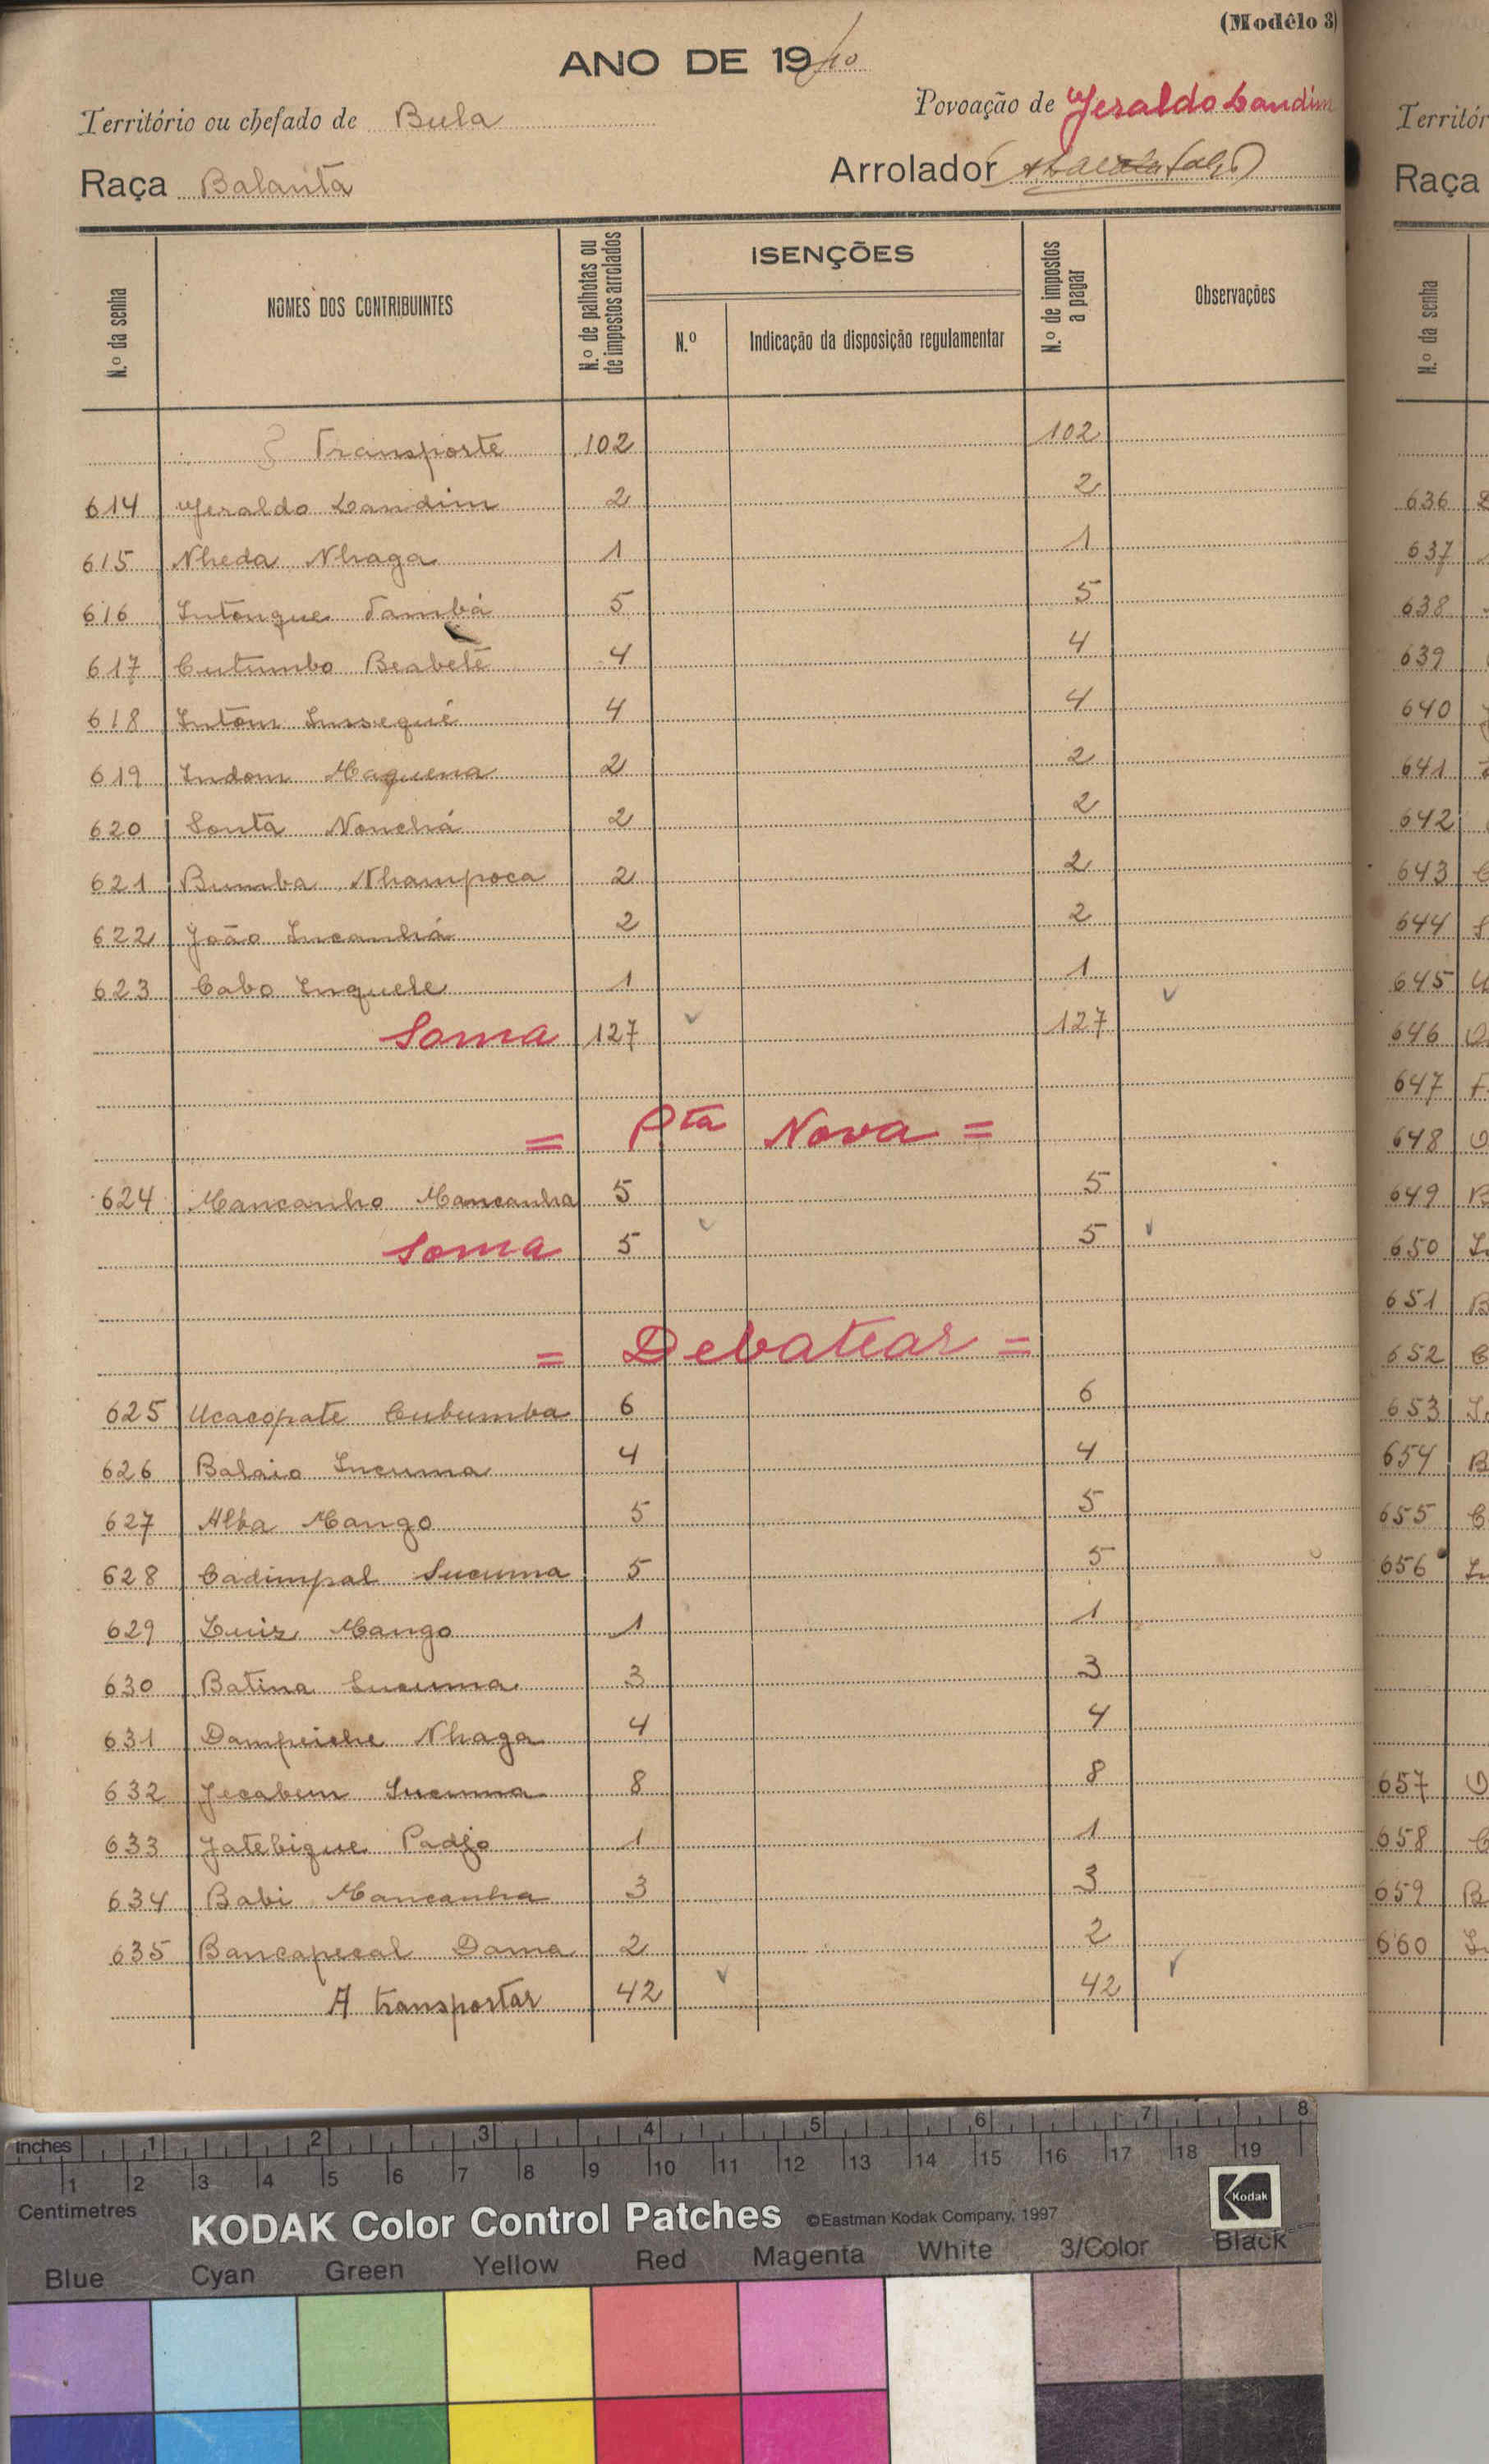 (Modêlo 3)
ANO DE 1940
Território ou chefado de Bula
Povoação de Geraldo Landim
Raça Balanta
Arrolador
N.º da senha
NOMES DOS CONTRIBUINTES
N.º de palhotas ou de impostos arrolados
ISENÇÕES
N.º
Indicação da disposição regulamentar
N.º de impostos a pagar
Observações
Transporte 102 102
614 Geraldo Landim 2 2
615 Nheda Nhaga 1 1
616 Intongue Tambá 5 5
617 Cutumbo Beabetê 4 4
618 Intom Inssequé 4 4
619 Indom Maquena 2 2
620 Sonta Nonchá 2 2
621 Bumba Nhampoca 2 2
622 João Incanhá 2 2
623 Cabo Inquele 1 1
Soma 127 127
= Pta Nova =
624 Mancanho Mancanha 5 5
Soma 5 5
= Debatear =
625 Ucacopate Cubumba 6 6
626 Balaio Incuma 4 4
627 Alba Mango 5 5
628 Cadimpal Sucuma 5 5
629 Luiz Mango 1 1
630 Batina Sucuma 3 3
631 Dampeiche Nhaga 4 4
632 Jecabem Sucuma 8 8
633 Jatebique Padjo 1 1
634 Babi Mancanha 3 3
635 Bancapecal Dama 2 2
A transportar 42 42
Territór
Raça
N.º da senha
636
637
638
639
640
641
642
643
644
645
646
647
648
649
650
651
652
653
654
655
656
657
658
659
660
inches 1 2 3 4 5 6 7 8
1 2 3 4 5 6 7 8 9 10 11 12 13 14 15 16 17 18 19
Centimetres
KODAK Color Control Patches ©Eastman Kodak Company, 1997
Kodak
Blue Cyan Green Yellow Red Magenta White 3/Color Black